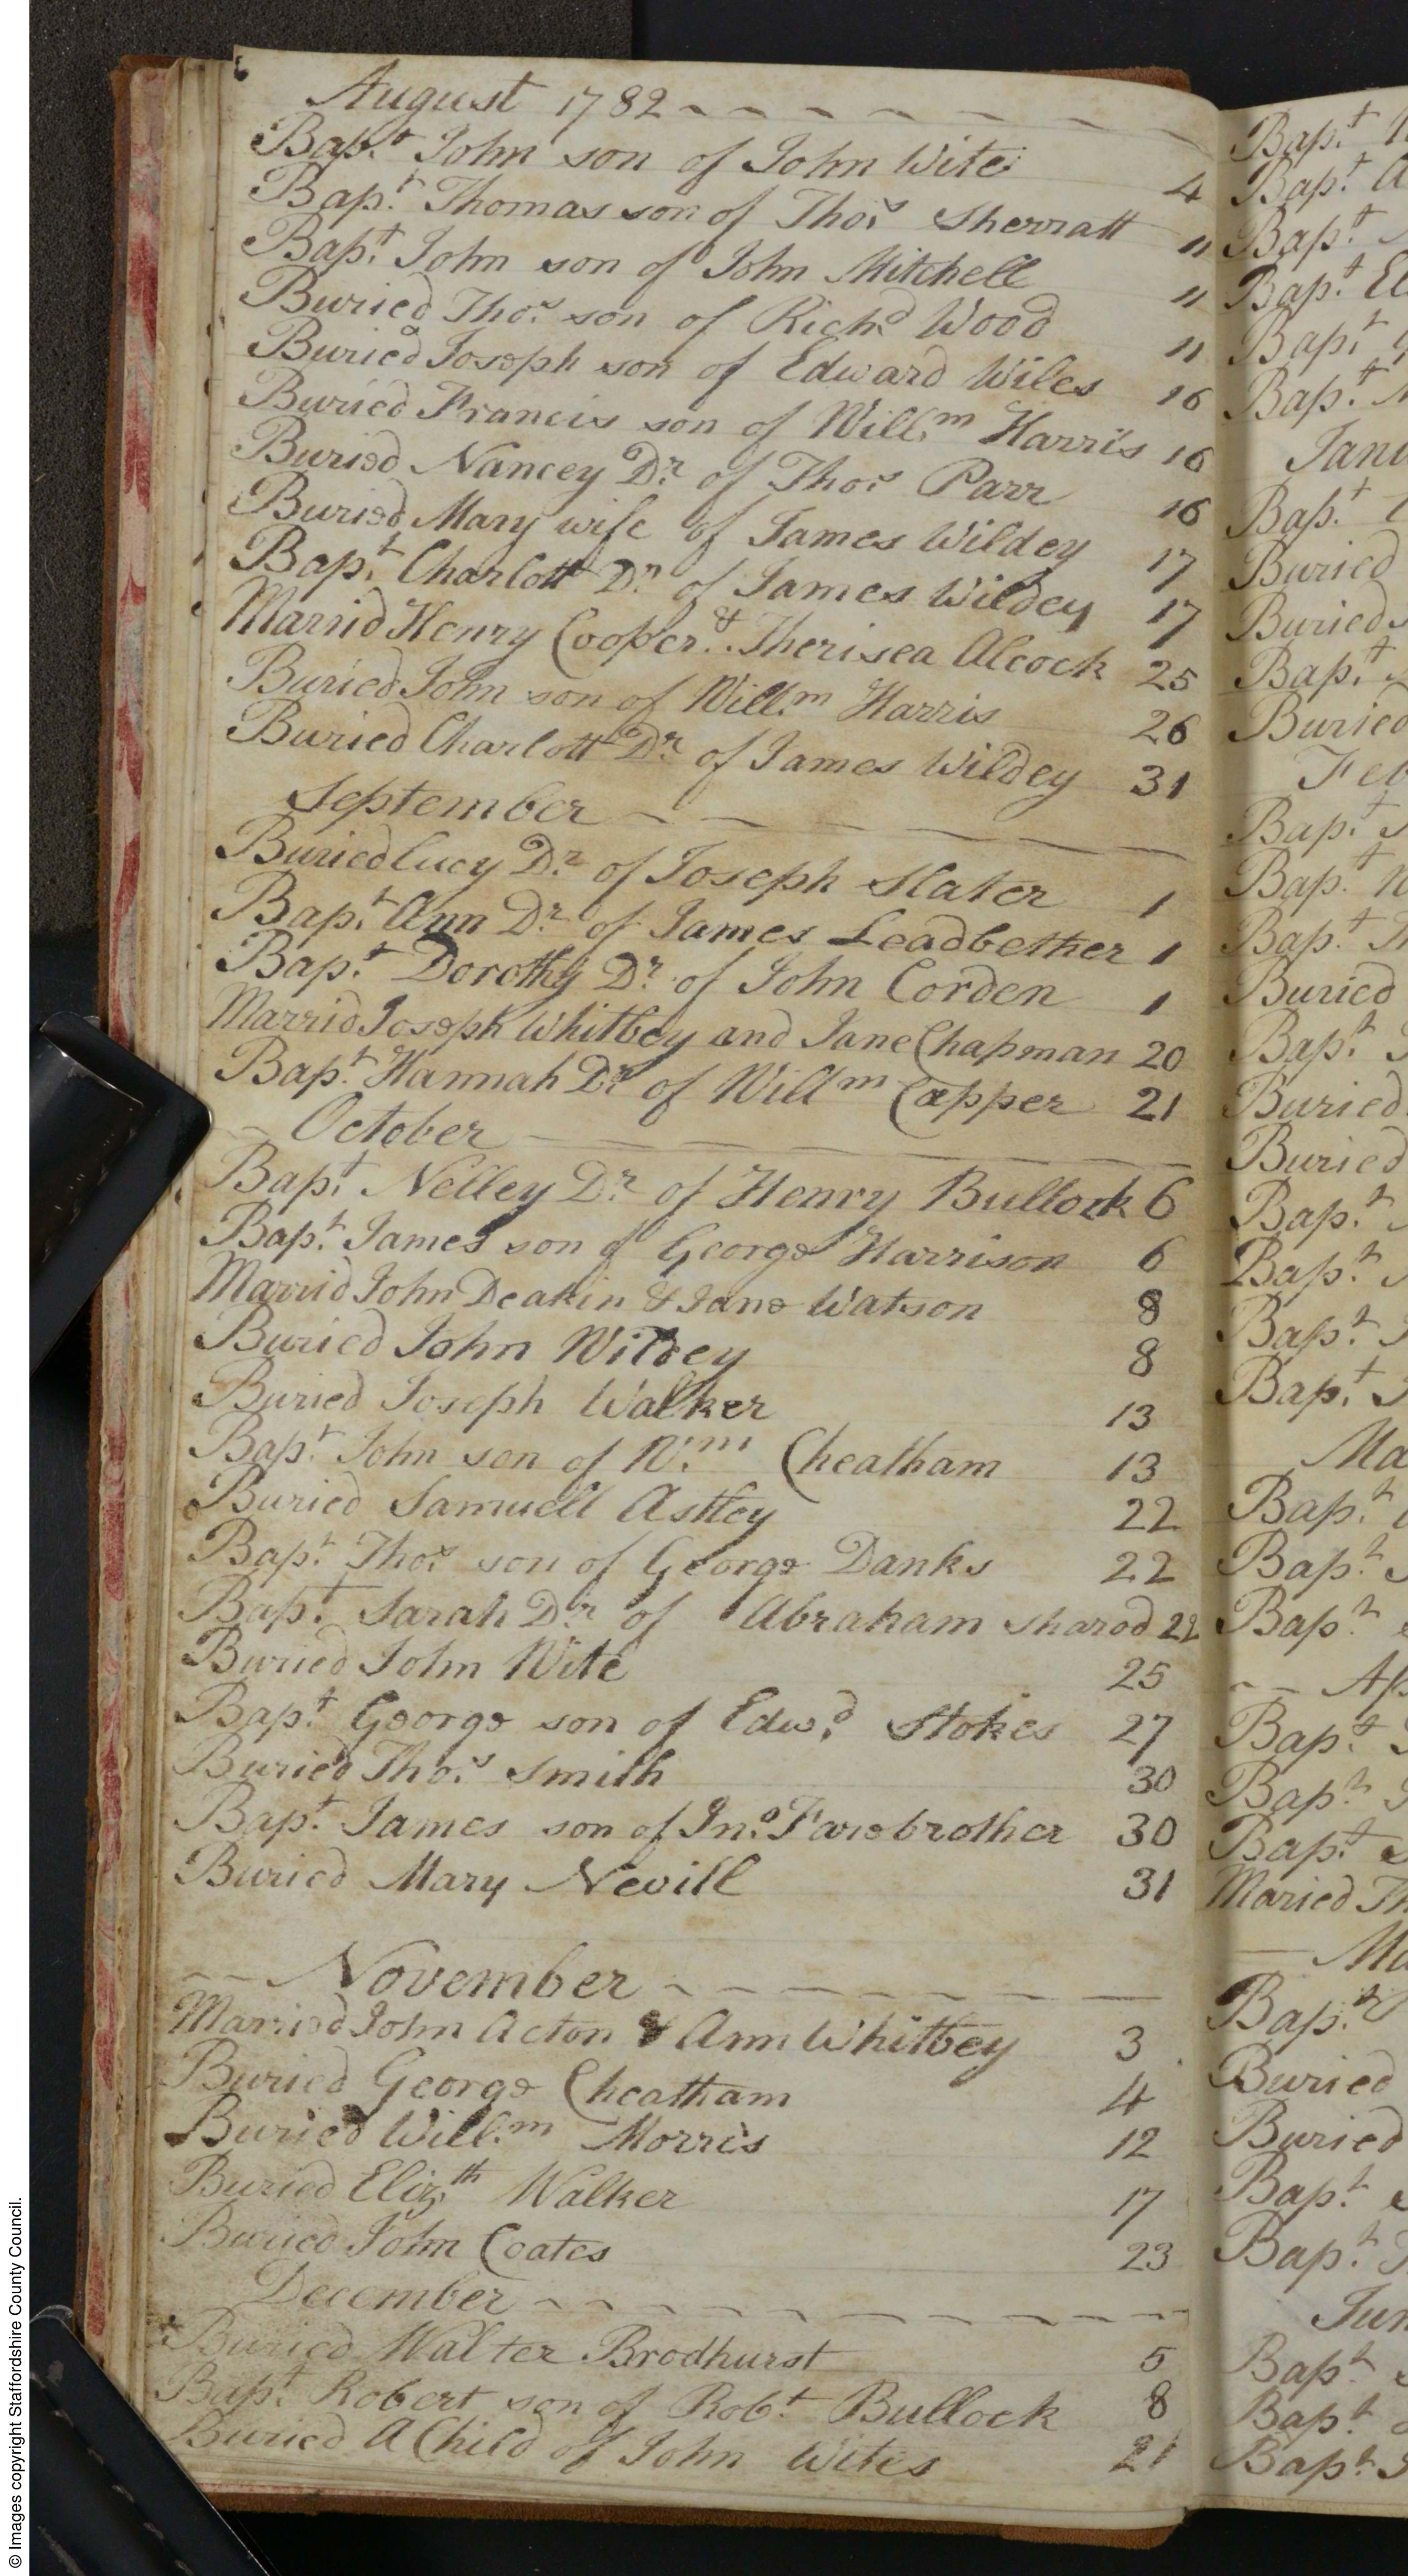 August 1782
Bap.t John son of John Wite 4
Bap.t Thomas son of Tho.s Sherratt 11
Bap.t John son of John Mitchell 11
Buried Tho.s son of Rich.d Wood 11
Buried Joseph son of Edward Wiles 16
Buried Francis son of Will.m Harris 16
Buried Nancey D.r of Tho.s Parr 16
Buried Mary wife of James Wildey 17
Bap.t Charlott D.r of James Wildey 17
Marrid Henry Cooper & Therisea Alcock 25
Buried John son of Will.m Harris 26
Buried Charlott D.r of James Wildey 31
September
Buried Lucy D.r of Joseph Slater 1
Bap.t Ann D.r of James Leadbether 1
Bap.t Dorothy D.r of John Corden 1
Marrid Joseph Whitbey and Jane Chapman 20
Bap.t Hannah D.r of Will.m Capper 21
October
Bap.t Nelley D.r of Henry Bullock 6
Bap.t James son of George Harrison 6
Marrid John Deakin & Jane Watson 8
Buried John Wildey 8
Buried Joseph Walker 13
Bap.t John son of W.m Cheatham 13
Buried Samuell Astley 22
Bap.t Tho.s son of George Danks 22
Bap.t Sarah D.r of Abraham Sharod 22
Buried John Wite 25
Bap.t George son of Edw.d Stokes 27
Buried Tho.s Smith 30
Bap.t James son of Jn.o Farebrother 30
Buried Mary Nevill 31
November
Married John Acton & Ann Whitbey 3
Buried George Cheatham 4
Buried Will.m Morris 12
Buried Eliz.th Walker 17
Buried John Coates 23
December
Buried Walter Brodhurst 5
Bap.t Robert son of Rob.t Bullock 8
Buried A Child of John Wites 21
Bap.t
Bap.t
Bap.t
Bap.t
Bap.t
Bap.t
Bap.t
Buried
Buried
Bap.t
Buried
Bap.t
Bap.t
Bap.t
Buried
Bap.t
Buried
Buried
Bap.t
Bap.t
Bap.t
Bap.t
Bap.t
Bap.t
Bap.t
Bap.t
Bap.t
Bap.t
Maried
Bap.t
Buried
Buried
Bap.t
Bap.t
Bap.t
Bap.t
Bap.t
© Images copyright Staffordshire County Council.